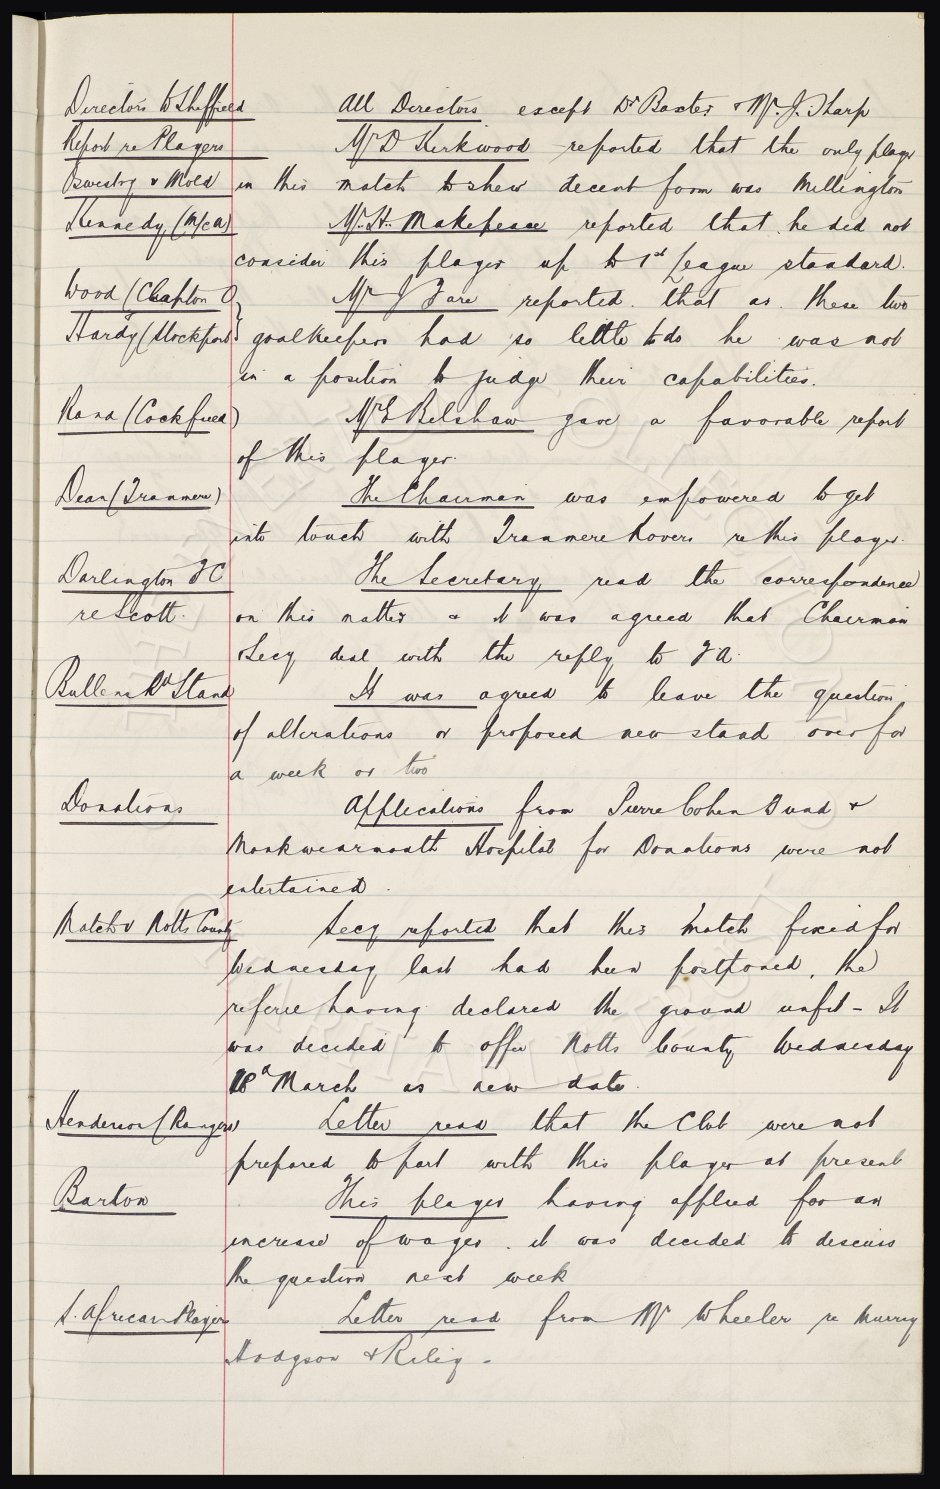 Directors to Sheffield All Directors except Dr Baxter & Mr. J. Sharp
Report re Players Mr D Kirkwood reported that the only player
Oswestry v Mold in this match to shew decent form was Millington
Kennedy (M/c A) Mr. H. Makepeace reported that he did not
consider this player up to 1st League standard.
Wood (Clapton O Mr J Fare reported that as these two
Hardy (Stockport goalkeepers had so little to do he was not
in a position to judge their capabilities.
Rand (Cockfield) Mr E Belshaw gave a favorable report
of this player.
Dean (Tranmere) The Chairman was empowered to get
into touch with Tranmere Rovers re this player.
Darlington FC The Secretary read the correspondence
re Scott. on this matter & it was agreed that Chairman
& Secy deal with the reply to FA.
Bullens Rd Stand It was agreed to leave the question
of alterations or proposed new stand over for
a week or two
Donations Applications from Pierre Cohen Fund &
Monkwearmouth Hospital for Donations were not
entertained.
Match v Notts County Secy reported that this match fixed for
Wednesday last had been postponed, the
referee having declared the ground unfit - It
was decided to offer Notts County Wednesday
18th March as new date.
Henderson (Rangers) Letter read that the Club were not
prepared to part with this player at present
Barton This player having applied for an
increase of wages, it was decided to discuss
the question next week
S. African Players Letter read from Mr Wheeler re Murray
Hodgson & Riley -